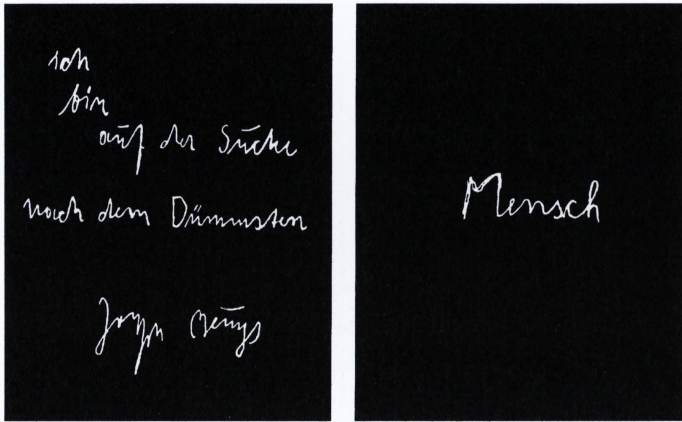 ich
bin
auf der Suche
nach dem Dümmsten
Joseph Beuys
Mensch